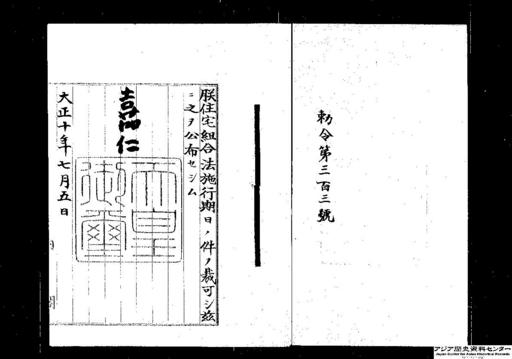 勅令第三百三號
朕住宅組合法施行期日ノ件ヲ裁可シ茲
ニ之ヲ公布セシム
嘉仁
天皇
御璽
大正十年七月五日
アジア歴史資料センター
Japan Center for Asian Historical Records